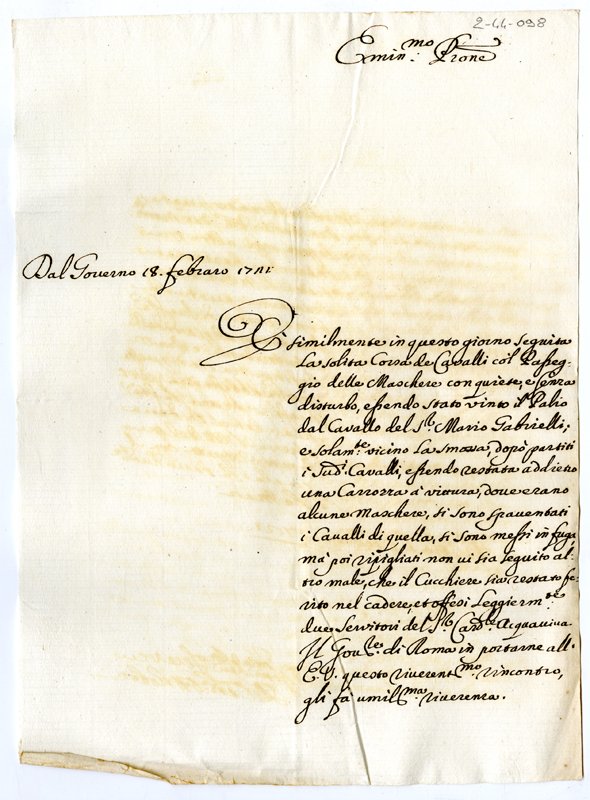 2-44-098
Emin.mo Prone
Dal Governo 18. febraro 1741
È similmente in questo giorno seguita
La solita Corsa de Cavalli col Passeg-
gio delle Maschere con quiete, e senza
disturbo, essendo stato vinto il Palio
dal Cavallo del S.r Mario Gabrielli;
e solam.te vicino La mossa, dopò partiti
i Sud.i Cavalli, essendo restata addietro
una Carrozza à vittura, dove erano
alcune Maschere, si sono spaventati
i Cavalli di quella, si sono messi in fuga
mà poi ripigliati non vi sia seguito al-
tro male, che il Cucchiere sia restato fe-
rito nel cadere, et offesi Leggierm.te
due Servitori del S.r Card.le Acquaviva.
Il Gov.re di Roma in portarne all'
E. V. questo riverent.mo rincontro,
gli fà umil.ma riverenza.